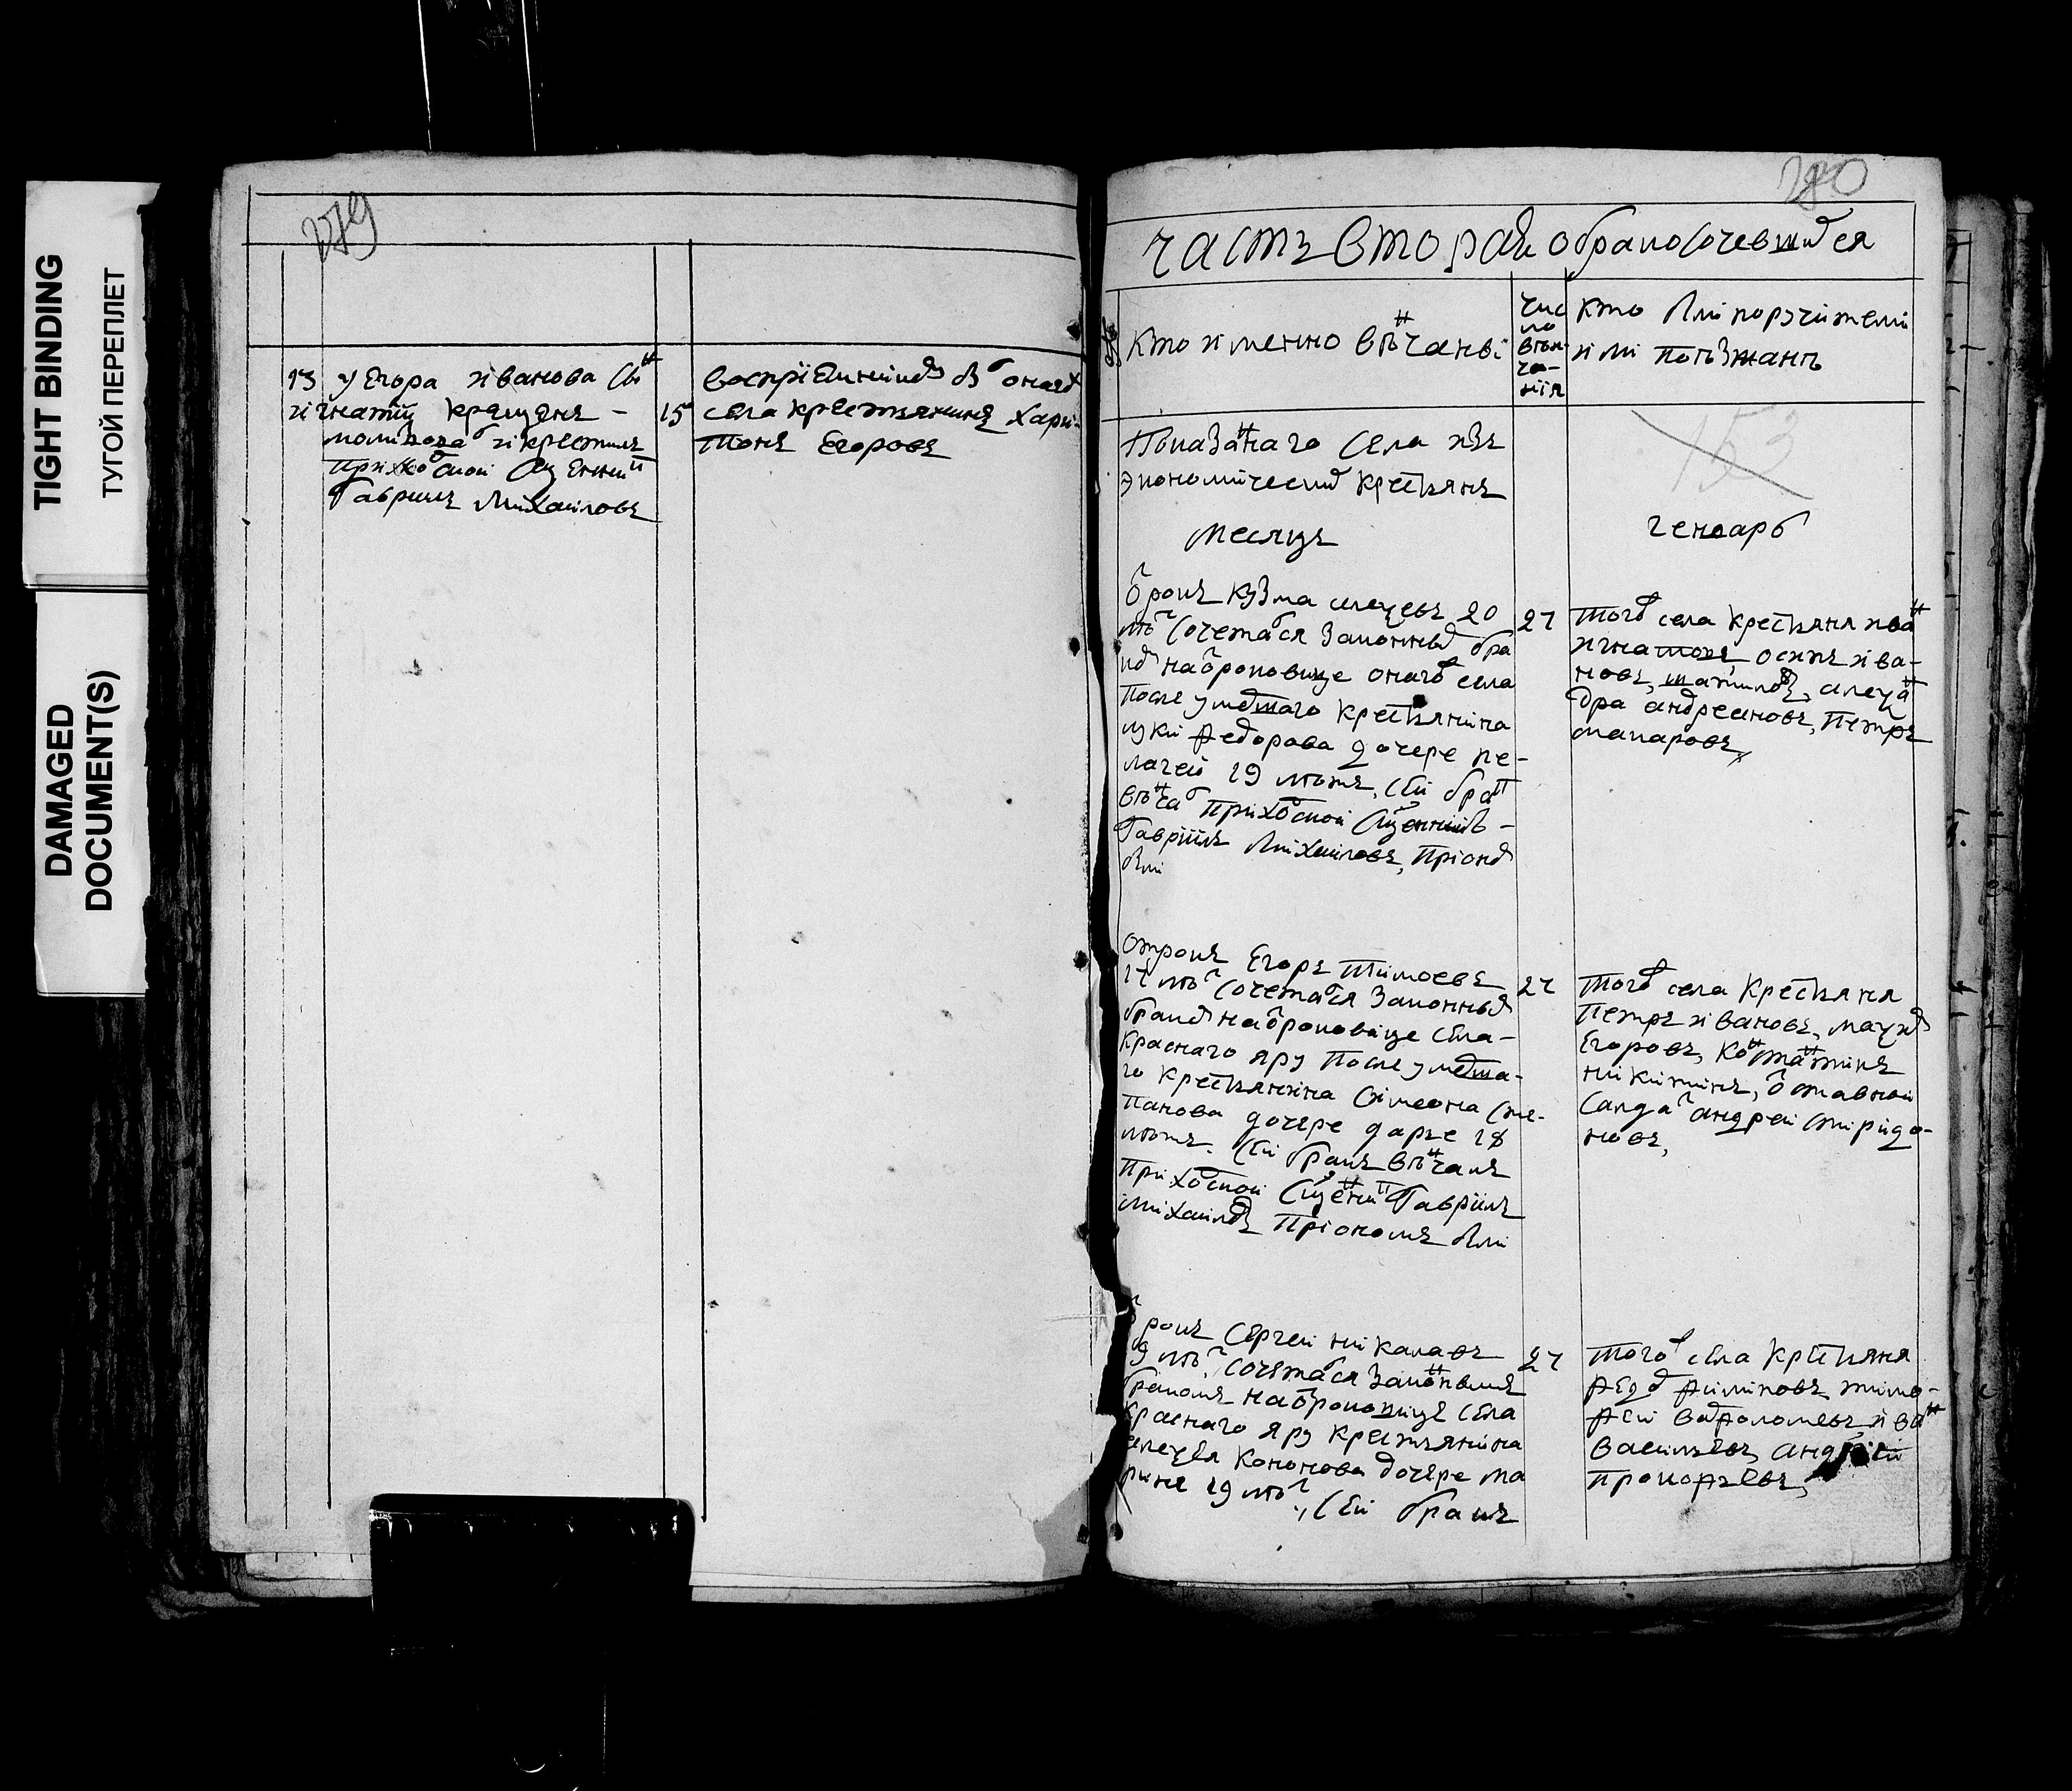 TIGHT BINDING
ТУГОЙ ПЕРЕПЛЕТ
DAMAGED
DOCUMENT(S)
279
13 у Егора иванова снъ
игнатии крещенъ - 15
молитвова и крестилъ
приходской сщенникъ
Гаврилъ Михаиловъ
воспрiемникъ былъ онагѡ
села крестьянинъ хари-
тонъ Егоровъ
280
часть вторая обракосочевшихся
кто именно венчаны
чис
ло
вѣн
ча-
нiя
кто были поручители
или поѣзжанѣ
Показаннаго села изъ
экономическихъ крестьянъ
153
месяцъ
генварь
отрокъ Кузма 20
лѣтъ сочетался законнымъ бра
комъ наотроковице онаго села
после умершаго крестьянина
луки Федорова дочере пе-
лагей 19 лѣтъ, сей бракъ
вѣнчалъ приходской сщенникъ -
Гаврiилъ Михаиловъ, приономъ
были
27
того села крестьяня иванъ
игнатовъ, осипъ ива-
новъ, алеѯан
дра андреановъ, петръ
макаровъ,
отрокъ Егоръ Тимоѳевъ
17 лѣтъ сочетался законнымъ
бракомъ наотроковице села -
Краснаго яру после умерша-
го крестьянина симеона сте-
панова дочере дарье 18
лѣтъ. сей бракъ вѣнчалъ
приходской сщенникъ Гаврiилъ
михаиловъ прiономъ были
27
того села крестьяня
петръ ивановъ, маѯимъ
Егоровъ, константинъ
никитинъ, отставной
салдатъ андреи спиридо-
новъ,
отрокъ сергеи николаевъ
19 лѣтъ сочетался законнымъ
бракомъ наотроковице села
Краснаго яру крестьянина
алеѯея Кононова дочере ма
рине 19 лѣтъ
., сей бракъ
27
того села крестьяня
Федоръ Филиповъ, тимо-
фей варфоломеевъ иванъ
васильевъ андрѣй
прокофьевъ,